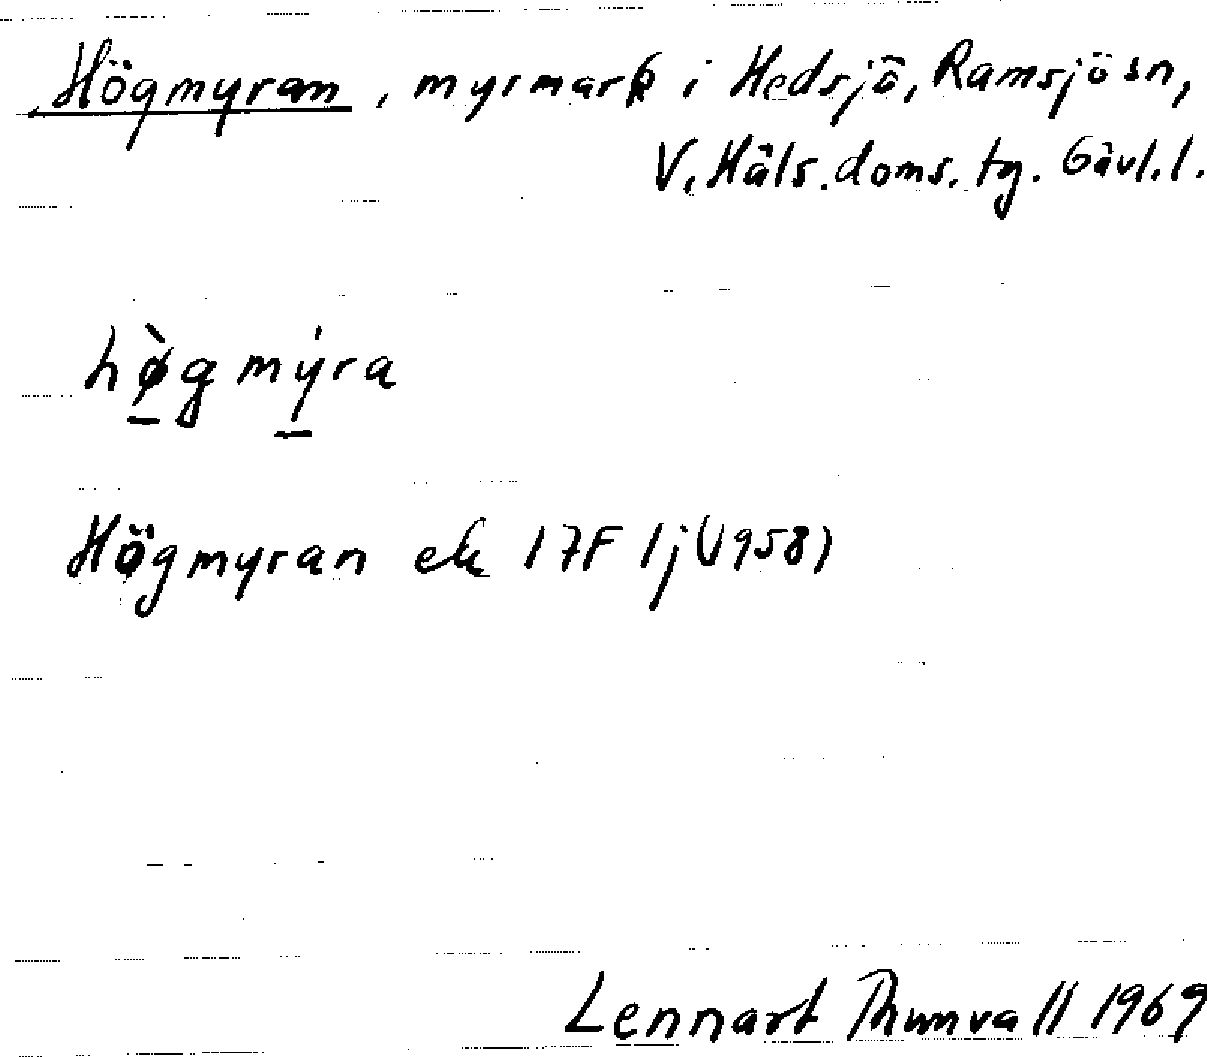 Högmyran, myrmark i Hedsjö, Ramsjö sn,
V. Häls. doms. tg. Gävl. l.
hø̀gmýra
Högmyran ek 17F 1j (1958)
Lennart Thunvall 1969